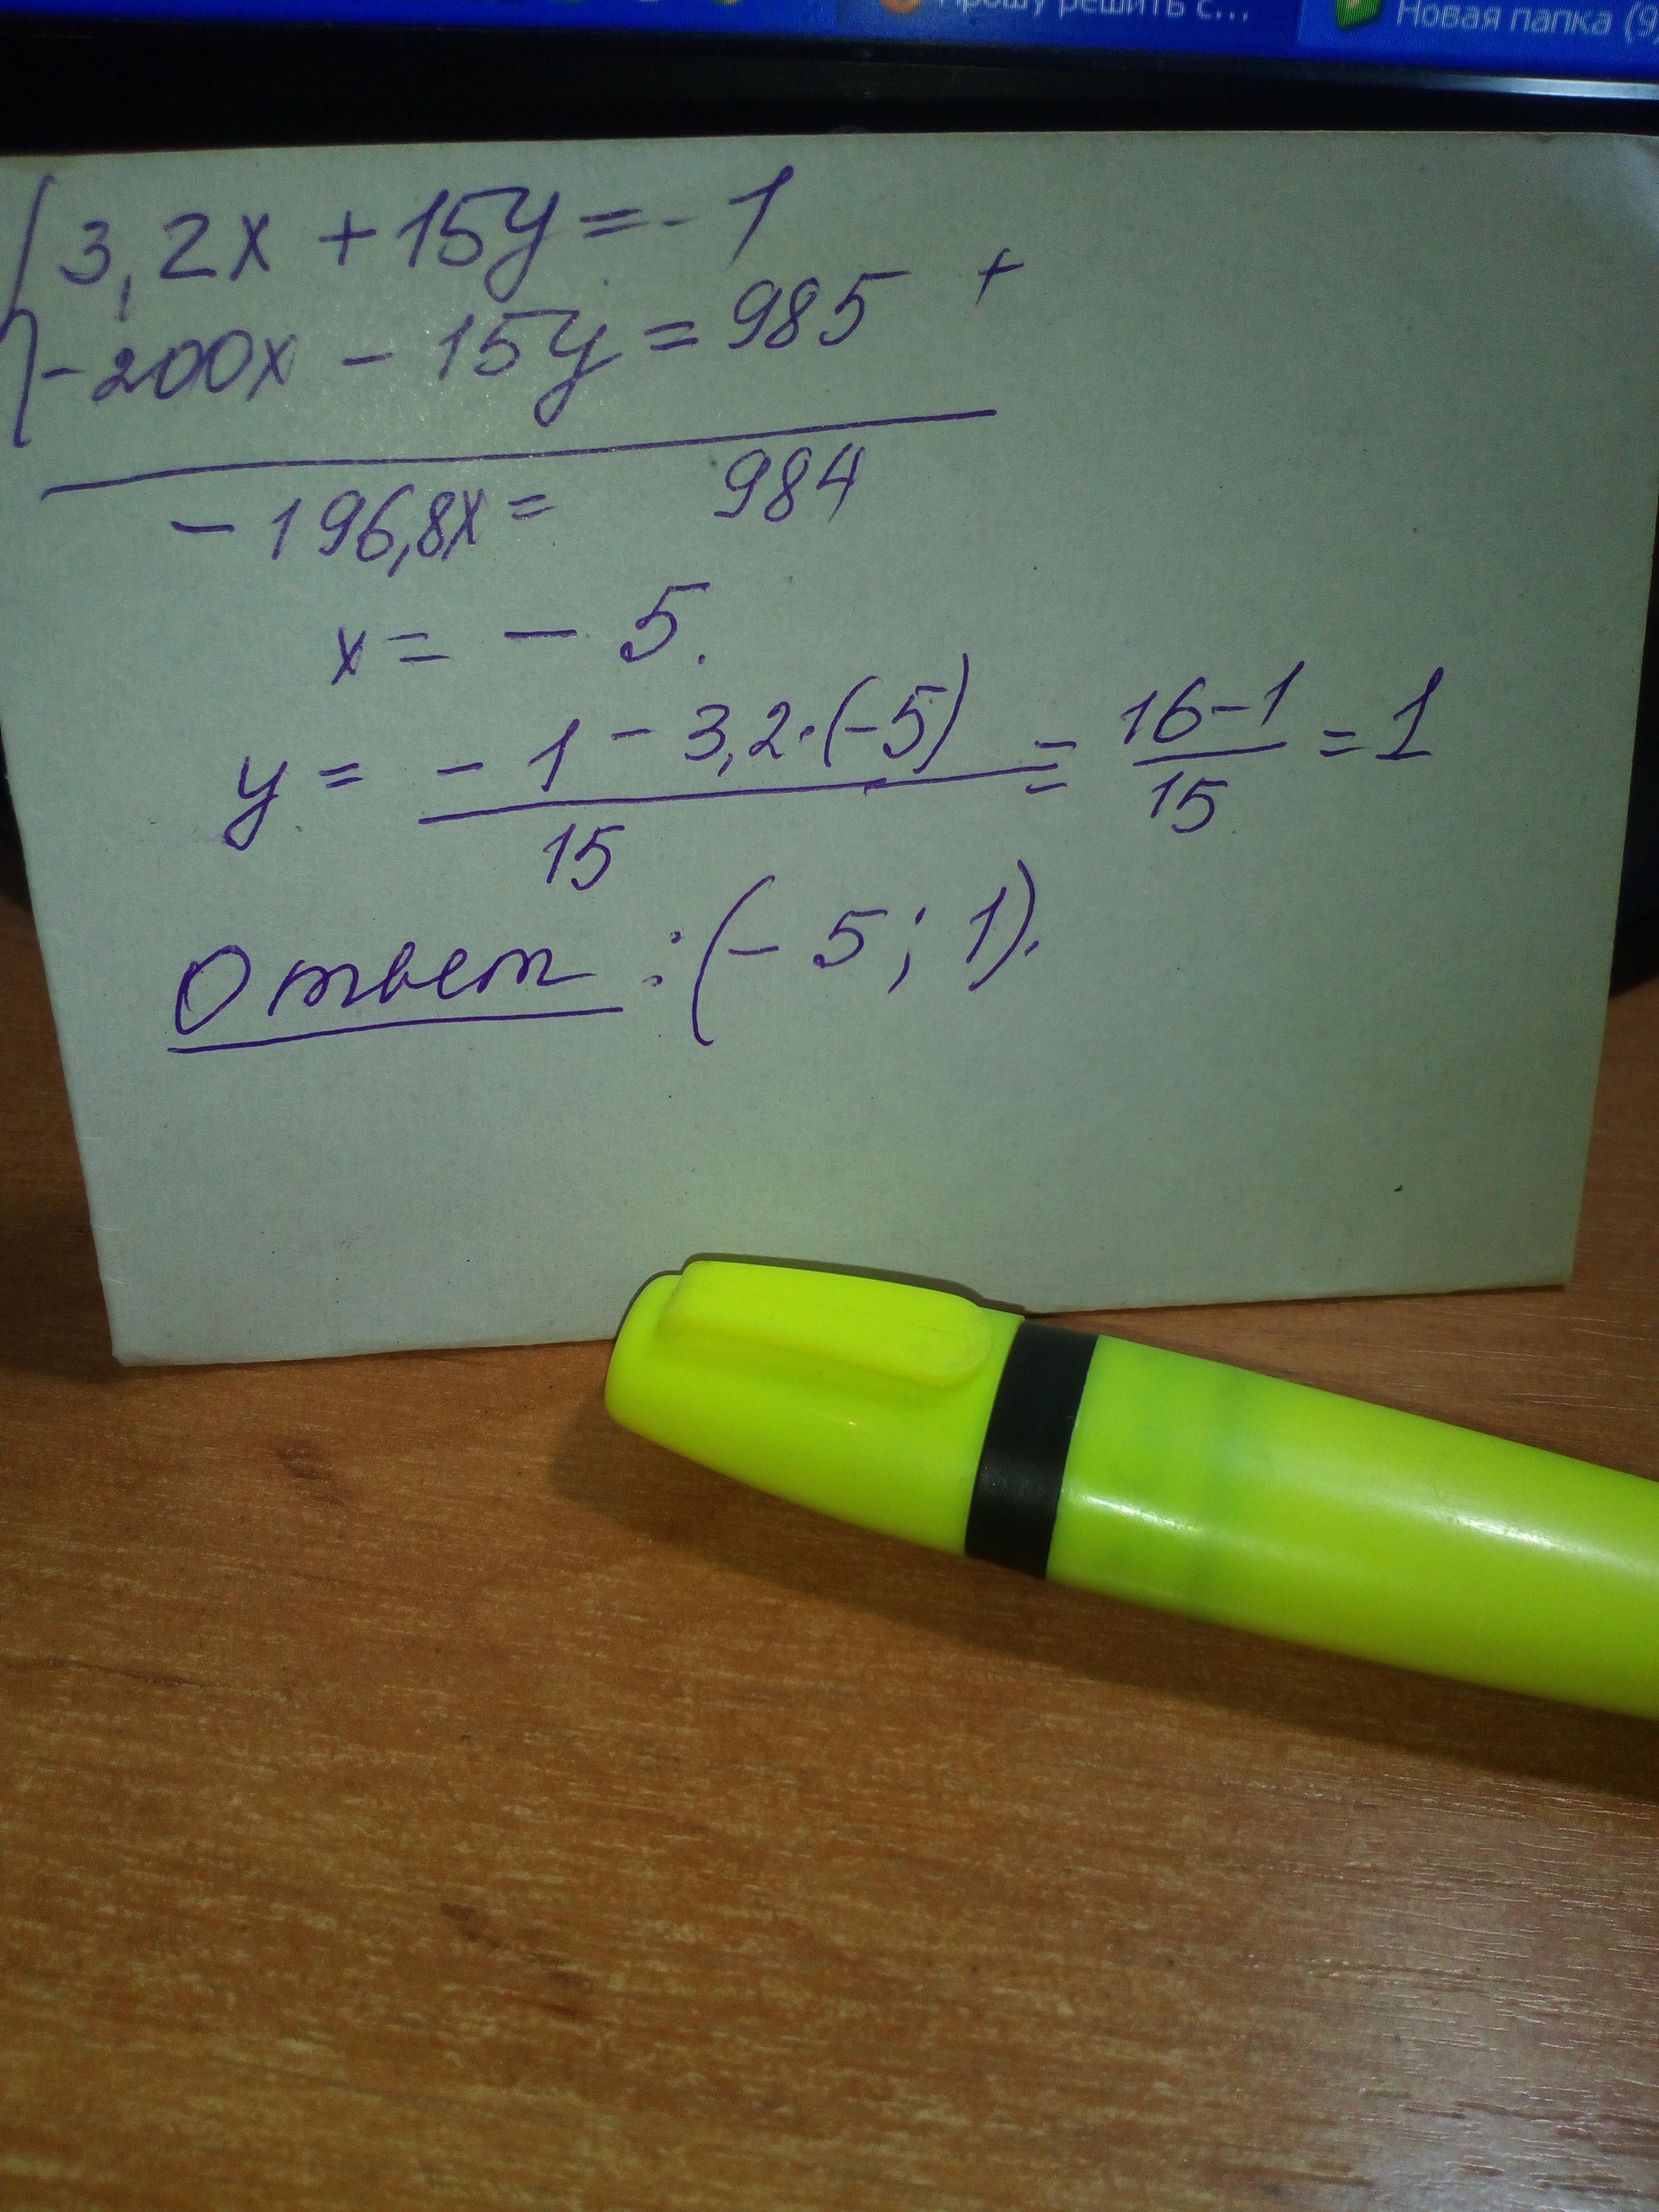 Прошу решить с...
Новая папка (9)
3,2x + 15y = - 1
-200x - 15y = 985 +
- 196,8x = 984
x = - 5.
y = - 1 - 3,2·(-5) / 15 = 16-1 / 15 = 1
Ответ: (- 5; 1).